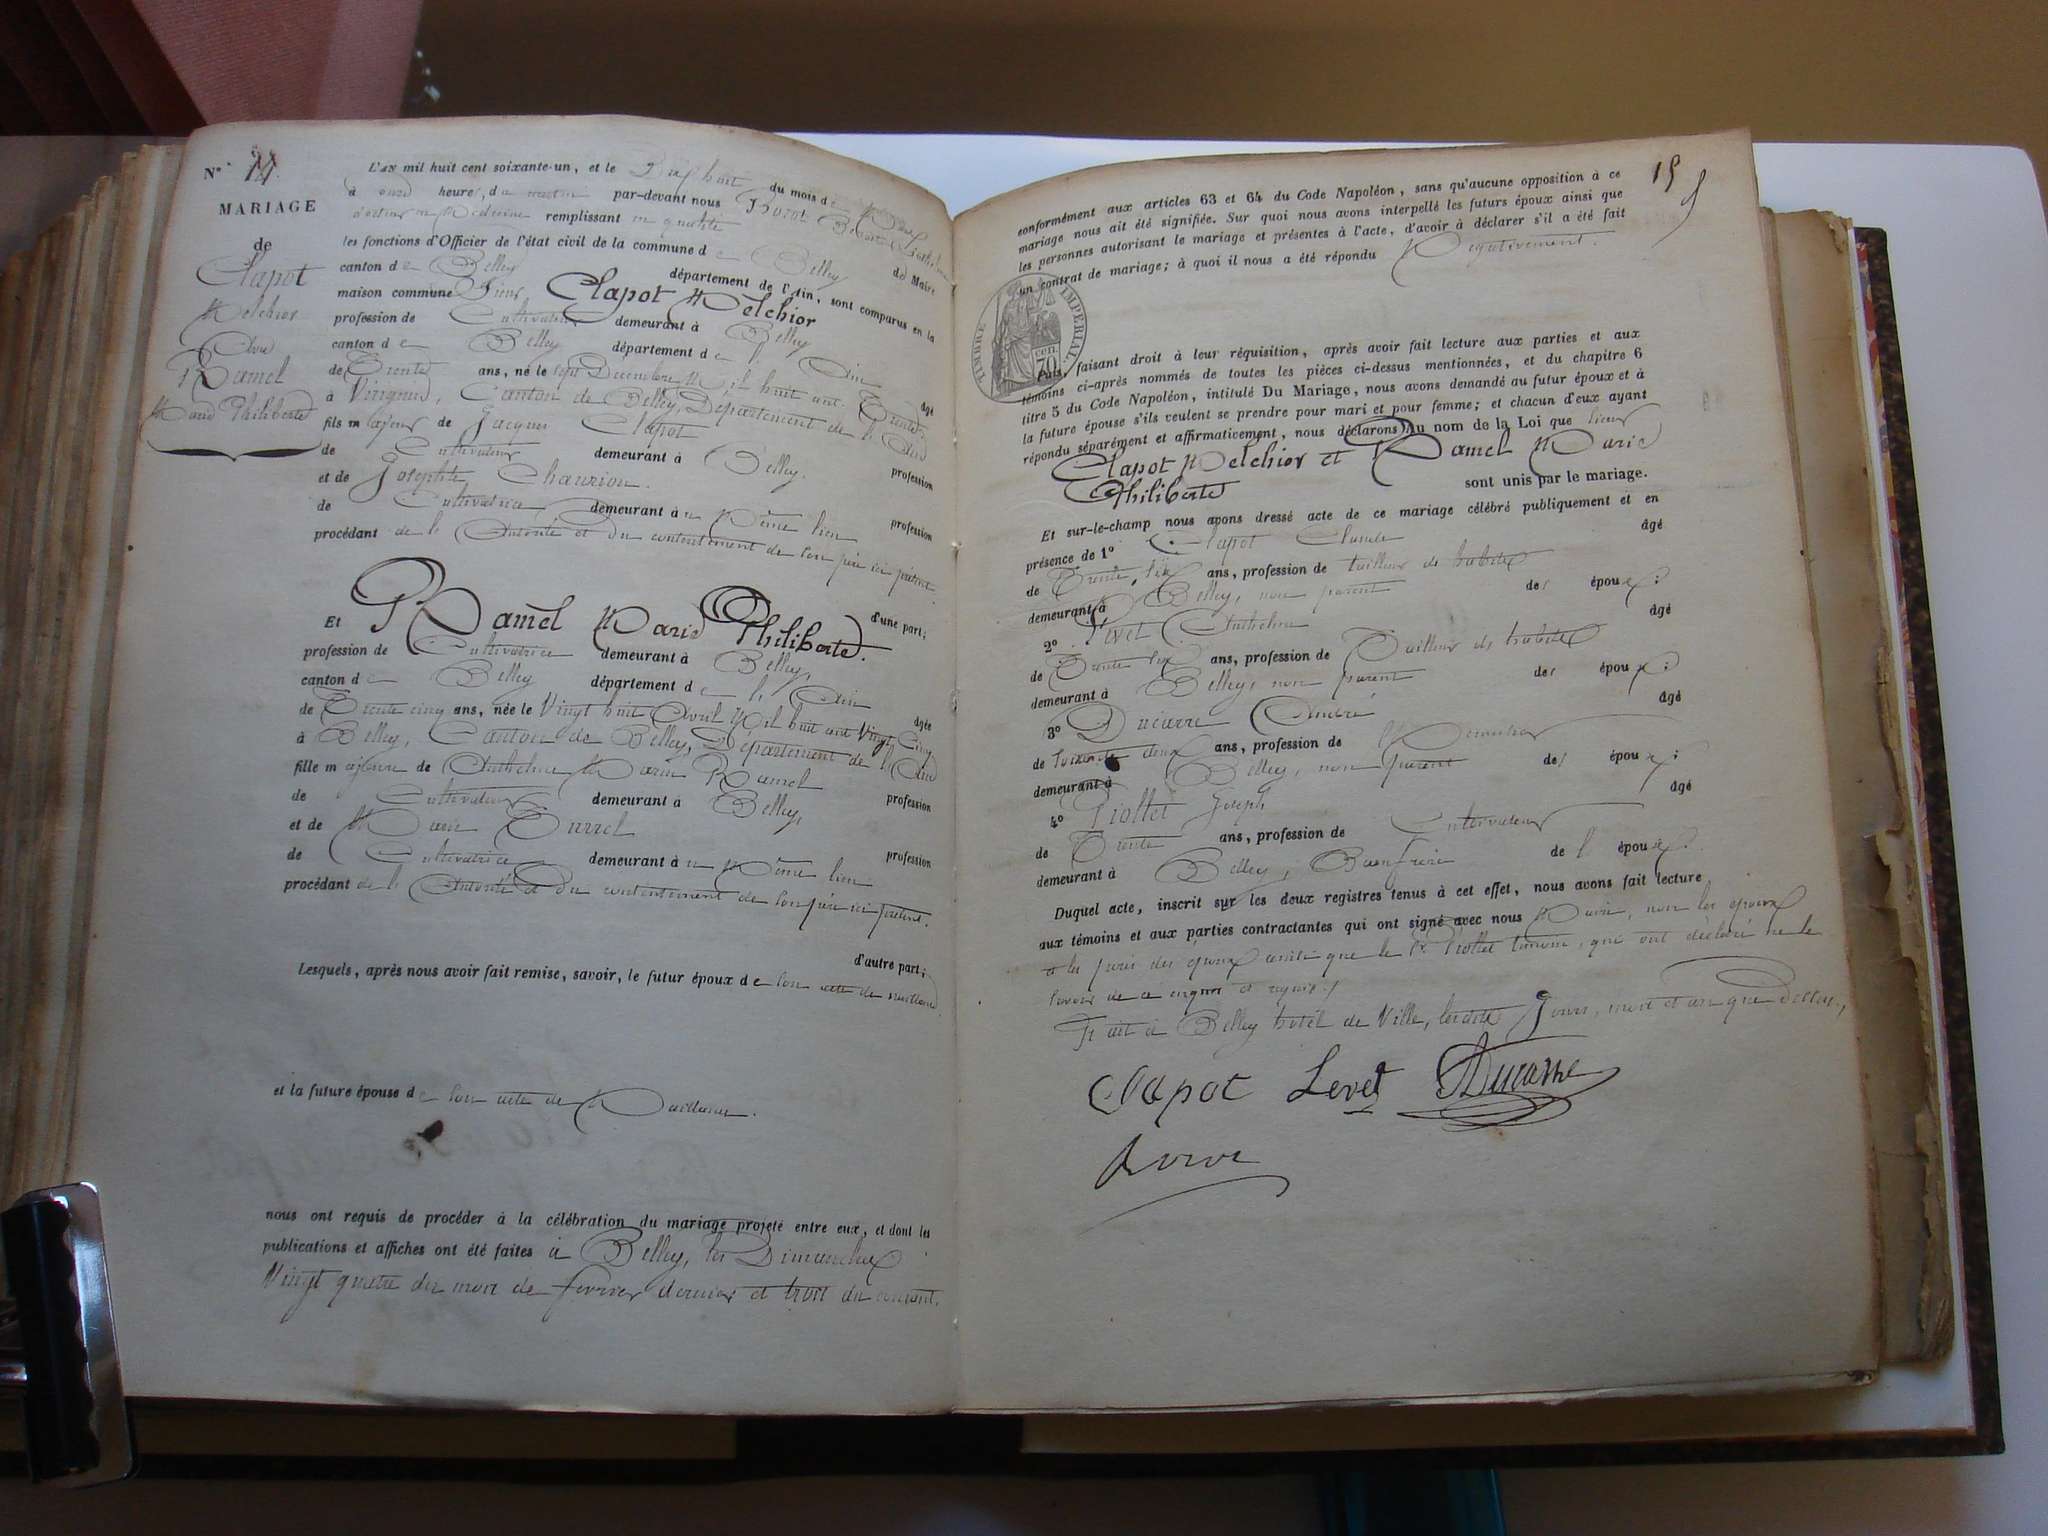 N°
MARIAGE
de
Clapot
Melchior
Avec
Ramel
Marie Philiberte
L'AN mil huit cent soixante-un, et le Dix huit du mois de Mars
à onze heures, du matin par-devant nous
docteur en Médecine remplissant en qualité de Maire
les fonctions d'Officier de l'état civil de la commune de Belley
canton de Belley département de l'Ain, sont comparus en la
maison commune Sieur Clapot Melchior
profession de Cultivateur demeurant à Belley
canton de Belley département de l' Ain âgé
de Trente ans, né le sept Décembre Mil huit cent Trente
à Virignin, Canton de Belley, Département de l'Ain
fils majeur de Jacques Clapot profession
de Cultivateur demeurant à Belley.
et de Josephte Chaurion. profession
de Cultivatrice demeurant au Même lieu
procédant de l' Autorité et du consentement de son père ici présent
d'une part;
Et Ramel Marie Philiberte.
profession de Cultivatrice demeurant à Belley,
canton de Belley département de l' Ain âgée
de Trente cinq ans, née le Vingt huit Avril Mil huit cent Vingt Cinq
à Belley, Canton de Belley, Département de l'Ain
fille majeure de Anthelme Marin Ramel profession
de Cultivateur demeurant à Belley,
et de Marie Burrel profession
de Cultivatrice demeurant au Même lieu
procédant de l' Autorité et du consentement de son père ici présent.
d'autre part;
Lesquels, après nous avoir fait remise, savoir, le futur époux de son acte de naissance
et la future épouse de son acte de Naissance.
nous ont requis de procéder à la célébration du mariage projeté entre eux, et dont les
publications et affiches ont été faites à Belley, les Dimanches
Vingt quatre du mois de février dernier et trois du courant.
15
conformément aux articles 63 et 64 du Code Napoléon, sans qu'aucune opposition à ce
mariage nous ait été signifiée. Sur quoi nous avons interpellé les futurs époux ainsi que
les personnes autorisant le mariage et présentes à l'acte, d'avoir à déclarer s'il a été fait
un contrat de mariage; à quoi il nous a été répondu Négativement.
TIMBRE IMPERIAL
70 cen.
Puis, faisant droit à leur réquisition, après avoir fait lecture aux parties et aux
témoins ci-après nommés de toutes les pièces ci-dessus mentionnées, et du chapitre 6
titre 5 du Code Napoléon, intitulé Du Mariage, nous avons demandé au futur époux et à
la future épouse s'ils veulent se prendre pour mari et pour femme; et chacun d'eux ayant
répondu séparément et affirmativement, nous déclarons Au nom de la Loi que sieur
Clapot Melchior et Ramel Marie
Philiberte sont unis par le mariage.
Et sur-le-champ nous avons dressé acte de ce mariage célébré publiquement et en
présence de 1° Clapot Claude âgé
de Trente six ans, profession de tailleur de habits
demeurant à Belley, non parent des époux;
2° Levet Anthelme âgé
de Trente six ans, profession de Tailleur de habits
demeurant à Belley, non parent des époux;
3° Ducarre André âgé
de soixante deux ans, profession de Menuisier
demeurant à Belley, non parent des époux;
4° Piollet Joseph âgé
de Trente ans, profession de Cultivateur
demeurant à Belley, Beaufrère de l'époux
Duquel acte, inscrit sur les deux registres tenus à cet effet, nous avons fait lecture
aux témoins et aux parties contractantes qui ont signé avec nous Maire, non les époux
et les pères des époux ainsi que le Sr Piollet témoin, qui ont déclaré ne le
savoir de ce enquis et requis./
Fait à Belley hôtel de Ville, lesdits Jours, mois et an que Dessus,
Clapot Levet Ducarre